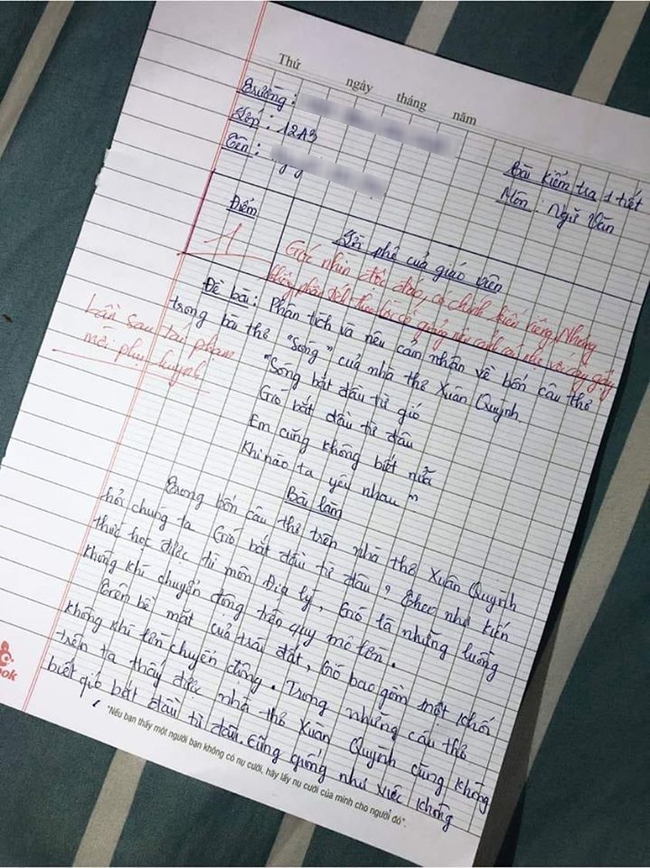 Thứ ngày tháng năm
Trường:
Lớp: 12A3
Tên:
Bài kiểm tra 1 tiết
Môn: Ngữ Văn
Điểm
1
Lời phê của giáo viên
Góc nhìn độc đáo, có chính kiến riêng. Nhưng
lần sau tái phạm
mời phụ huynh
Đề bài: Phân tích và nêu cảm nhận về bốn câu thơ
trong bài thơ "Sóng" của nhà thơ Xuân Quỳnh.
"Sóng bắt đầu từ gió
Gió bắt đầu từ đâu
Em cũng không biết nữa
Khi nào ta yêu nhau"
Bài làm
Trong bốn câu thơ trên nhà thơ Xuân Quỳnh
hỏi chúng ta Gió bắt đầu từ đâu? Theo như kiến
thức học được từ môn Địa lý, Gió là những luồng
không khí chuyển động trên quy mô lớn.
Trên bề mặt của trái đất, Gió bao gồm một khối
không khí lớn chuyển động. Trong những câu thơ
trên ta thấy được nhà thơ Xuân Quỳnh cũng không
biết gió bắt đầu từ đâu, cũng giống như việc không
"Nếu bạn thấy một người bạn không có nụ cười, hãy lấy nụ cười của mình cho người đó".
ook